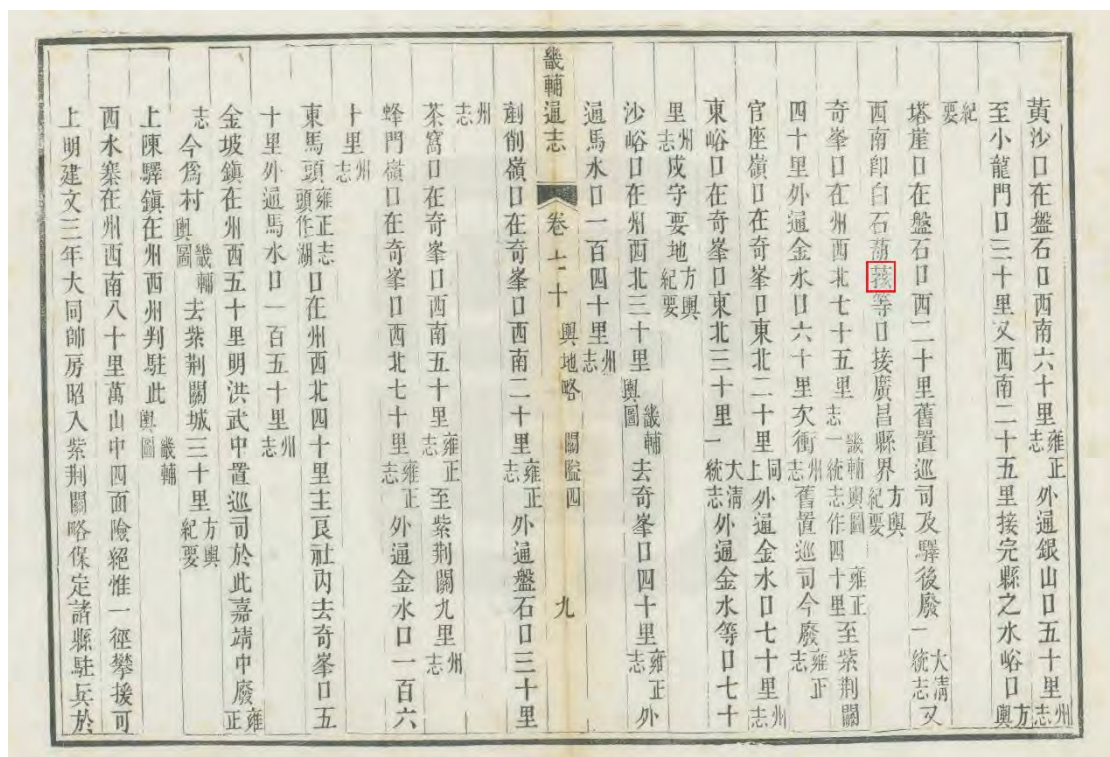 黃沙口在盤石口西南六十里雍正志外通銀山口五十里州志
至小龍門口三十里又西南二十五里接完縣之水峪口方輿
紀要
塔崖口在盤石口西二十里舊置巡司及驛後廢大清一統志又
西南卽白石等口接廣昌縣界方輿紀要
奇峯口在州西北七十五里畿輔輿圖雍正志一統志作四十里至紫荆關
四十里外通金水口六十里次衝州志舊置巡司今廢雍正志
官座嶺口在奇峯口東北二十里同上外通金水口七十里州志
東峪口在奇峯口東北三十里大清一統志外通金水等口七十
里州志戍守要地方輿紀要
沙峪口在州西北三十里畿輔輿圖去奇峯口四十里雍正志外
通馬水口一百四十里州志
畿輔通志 卷七十 輿地略 關隘四 九
削嶺口在奇峯口西南二十里雍正志外通盤石口三十里
州志
茶窩口在奇峯口西南五十里雍正志至紫荆關九里州志
蜂門嶺口在奇峯口西北七十里雍正志外通金水口一百六
十里州志
東馬頭雍正志頭作湖口在州西北四十里主良社內去奇峯口五
十里外通馬水口一百五十里州志
金坡鎮在州西五十里明洪武中置巡司於此嘉靖中廢雍正
志今爲村畿輔輿圖去紫荆關城三十里方輿紀要
上陳驛鎮在州西州判駐此畿輔輿圖
西水寨在州西南八十里萬山中四面險絕惟一徑攀援可
上明建文三年大同帥房昭入紫荆關略保定諸縣駐兵於